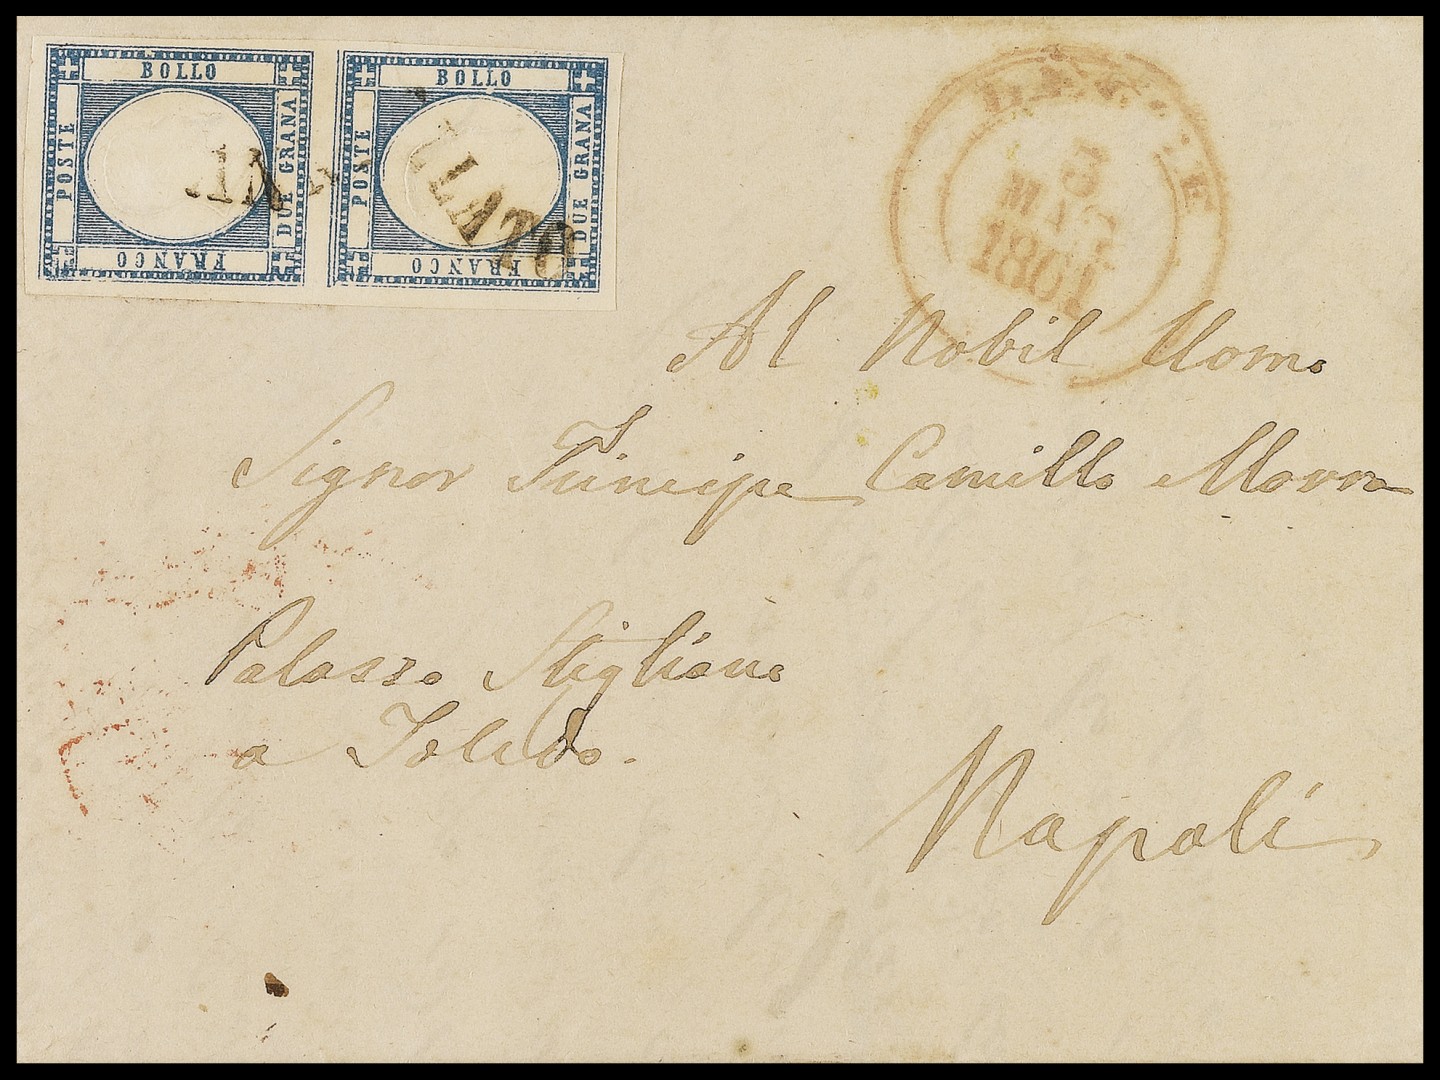 BOLLO
POSTE
DUE GRANA
FRANCO
BOLLO
POSTE
DUE GRANA
FRANCO
5
MAG
1861
Al Nobil Uomo
Signor Principe Camillo Morra
Palazzo Stigliano
a Toledo.
Napoli